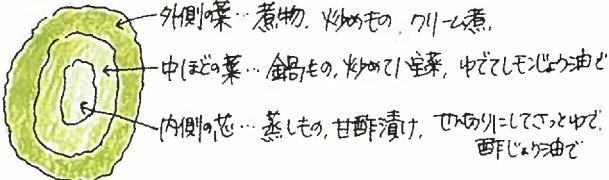 外側の葉…煮物、炒めもの クリーム煮、
中ほどの葉…鍋もの,炒めて八宝菜, ゆでてレモンじょうゆ油で
内側の芯…蒸しもの,甘酢漬け, せん切りにしてさっとゆで,
酢じょうゆ油で